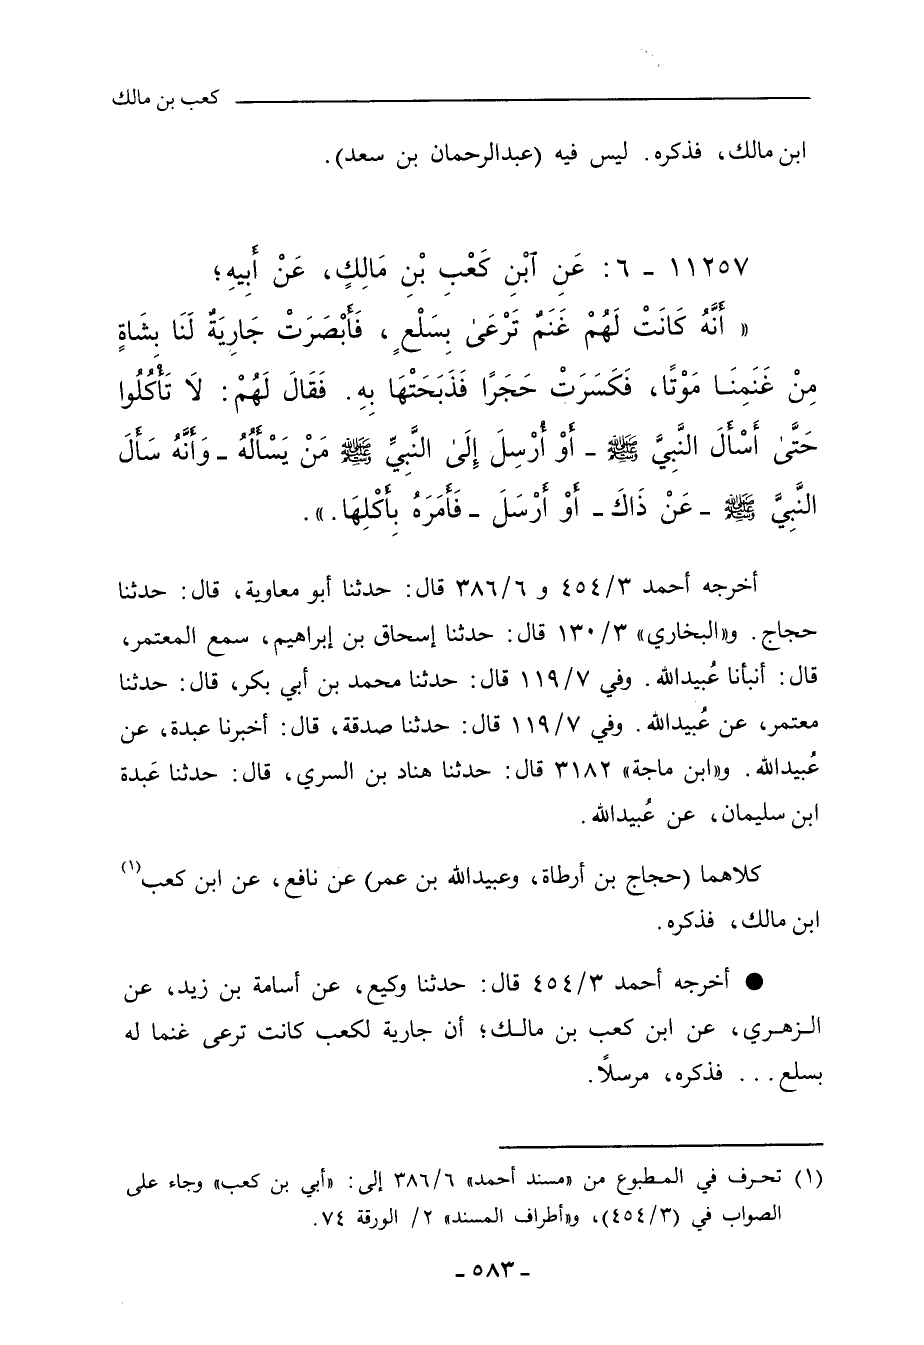 كعب بن مالك
ابن مالك، فذكره. ليس فيه (عبدالرحمان بن سعد).
١١٢٥٧ ـ ٦: عَنِ آبْنِ كَعْبِ بْنِ مَالِكٍ، عَنْ أَبِيهِ؛
« أَنَّهُ كَانَتْ لَهُمْ غَنَمٌ تَرْعَىٰ بِسَلْعٍ، فَأَبْصَرَتْ جَارِيَةٌ لَنَا بِشَاةٍ
مِنْ غَنَمِنَا مَوْتًا، فَكَسَرَتْ حَجَرًا فَذَبَحَتْهَا بِهِ. فَقَالَ لَهُمْ: لَا تَأْكُلُوا
حَتَّىٰ أَسْأَلَ النَّبِيَّ ﷺ ـ أَوْ أُرْسِلَ إِلَىٰ النَّبِيِّ ﷺ مَنْ يَسْأَلُهُ ـ وَأَنَّهُ سَأَلَ
النَّبِيَّ ﷺ ـ عَنْ ذَاكَ ـ أَوْ أَرْسَلَ ـ فَأَمَرَهُ بِأَكْلِهَا.».
أخرجه أحمد ٤٥٤/٣ و ٣٨٦/٦ قال: حدثنا أبو معاوية، قال: حدثنا
حجاج. و«البخاري» ١٣٠/٣ قال: حدثنا إسحاق بن إبراهيم، سمع المعتمر،
قال: أنبأنا عُبيدالله. وفي ١١٩/٧ قال: حدثنا محمد بن أبي بكر، قال: حدثنا
معتمر، عن عُبيدالله. وفي ١١٩/٧ قال: حدثنا صدقة، قال: أخبرنا عبدة، عن
عُبيدالله. و«ابن ماجة» ٣١٨٢ قال: حدثنا هناد بن السري، قال: حدثنا عَبدة
ابن سليمان، عن عُبيدالله.
كلاهما (حجاج بن أرطاة، وعبيدالله بن عمر) عن نافع، عن ابن كعب(١)
ابن مالك، فذكره.
● أخرجه أحمد ٤٥٤/٣ قال: حدثنا وكيع، عن أسامة بن زيد، عن
الزهري، عن ابن كعب بن مالك؛ أن جارية لكعب كانت ترعى غنما له
بسلع... فذكره، مرسلاً.
(١) تحرف في المطبوع من «مسند أحمد» ٣٨٦/٦ إلى: «أبي بن كعب» وجاء على
الصواب في (٤٥٤/٣)، و«أطراف المسند» ٢/ الورقة ٧٤.
ـ ٥٨٣ ـ